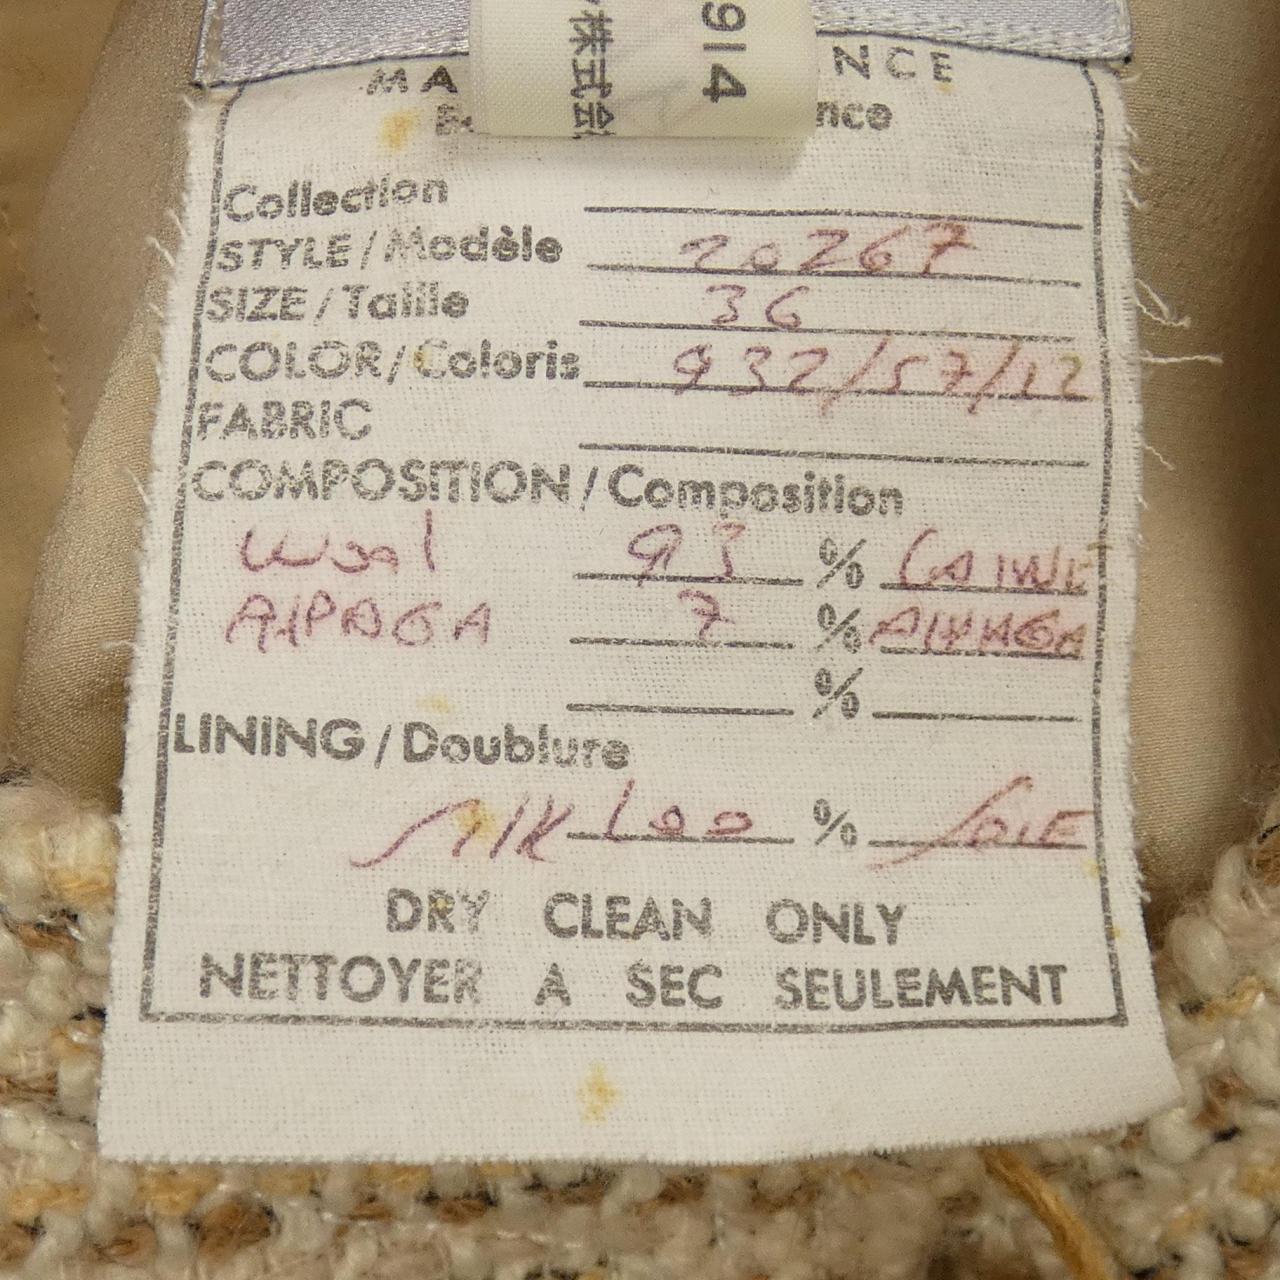 914
株式会
MA NCE
nce
Collection
STYLE/Modèle 20267
SIZE/Taille 36
COLOR/Coloris 932/57/12
FABRIC
COMPOSITION/Composition
Wool 93 %
AlPAGA 7 % AlPAGA
%
LINING/Doublure
silk 100 % SOIE
DRY CLEAN ONLY
NETTOYER A SEC SEULEMENT